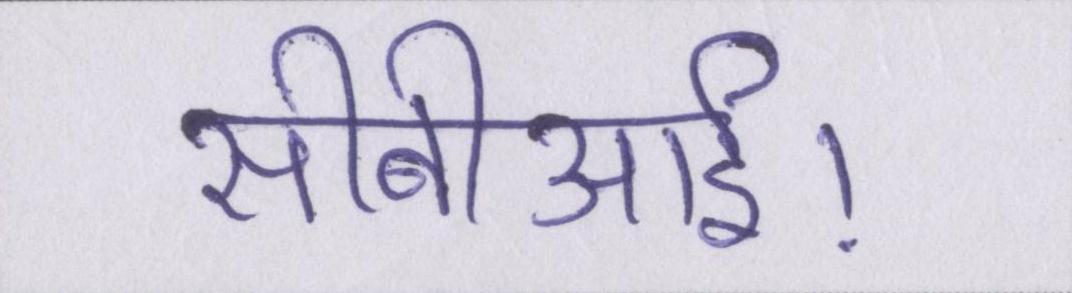 सीबीआई!